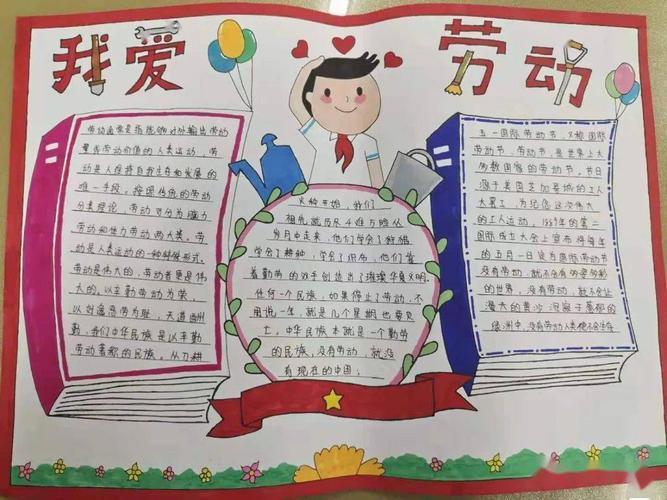 我爱
劳动
劳动通常是指能够对外输出劳动
量或劳动价值的人类运动，劳
动是人维持自我生存和发展的
唯一手段。按照传统的劳动
分类理论，劳动可分为脑力
劳动和体力劳动两大类。劳
动是人类运动的一种特殊形式。
劳动是伟大的，劳动者更是伟
大的。以辛勤劳动为荣，
以好逸恶劳为耻，天道酬
勤，我们中华民族是以辛勤
劳动著称的民族。从刀耕
火种开始，我们
祖先就历尽艰难与险从
岁月中走来，他们学会了狩猎
学会了耕种，学会了织布，他们靠
着勤劳的双手创造出了璀璨华夏文明。
任何一个民族，如果停止了劳动，不
用说一年，就是几个星期也要灭
亡。中华民族本就是一个勤劳
的民族，没有劳动，就没
有现在的中国；
五一国际劳动节，又称国际
劳动节，劳动节，是世界上大
多数国家的劳动节。节日
源于美国芝加哥城的工人
大罢工，为纪念这次伟大
的工人运动，1889年的第二
国际成立大会上宣布将每年
的五月一日设为国际劳动节
没有劳动，就不会有多姿多彩
的世界，没有劳动，就不会让
漫天的黄沙沉寂于葱郁的
绿洲中，没有劳动人类